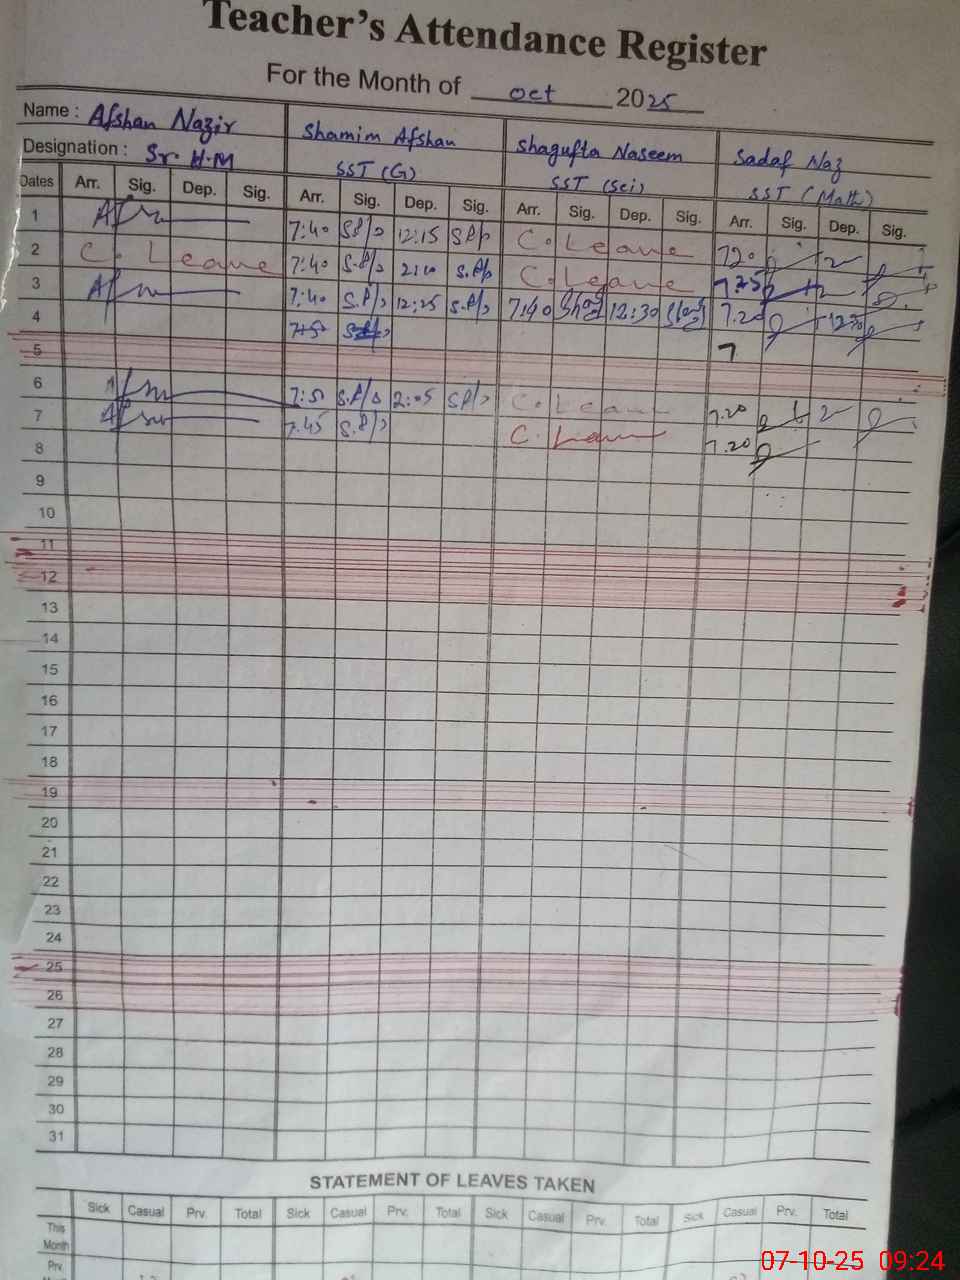 Teacher's Attendance Register
For the Month of oct 2025
Name : Afshan Nazir Shamim Afshan Shagufta Naseem Sadaf Naz
Designation : Sr. H.M SST (G) SST (Sci) SST (Math)
Dates Arr. Sig. Dep. Sig. Arr. Sig. Dep. Sig. Arr. Sig. Dep. Sig. Arr. Sig. Dep. Sig.
1 7:40 12:15 C. Leave 720
2 C. Leave 7:40 2:10 C. Leave 725
3 7:40 12:25 7:40 12:30 7.20
4
5
6 2:05 C. Leave 7.20 2
7 7.45 C. Leave 7.20
8
9
10
11
12
13
14
15
16
17
18
19
20
21
22
23
24
25
26
27
28
29
30
31
STATEMENT OF LEAVES TAKEN
Sick Casual Prv. Total Sick Casual Prv. Total Sick Casual Prv. Total Sick Casual Prv. Total
This
Month
Prv.
07-10-25 09:24